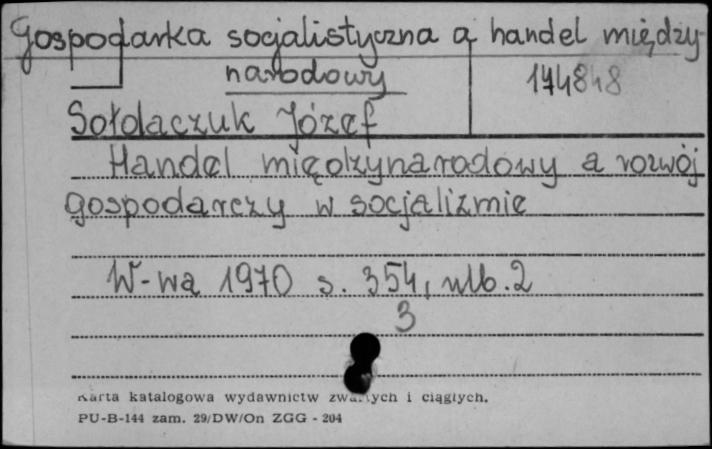 Gospodarka socjalistyczna a handel między-
narodowy
174848
Sołdaczuk Józef
Handel międzynarodowy a rozwój
gospodarczy w socjalizmie
W-wa 1970 s. 354, nlb. 2
3
Karta katalogowa wydawnictw zwartych i ciągłych.
PU-B-144 zam. 29/DW/On ZGG - 204